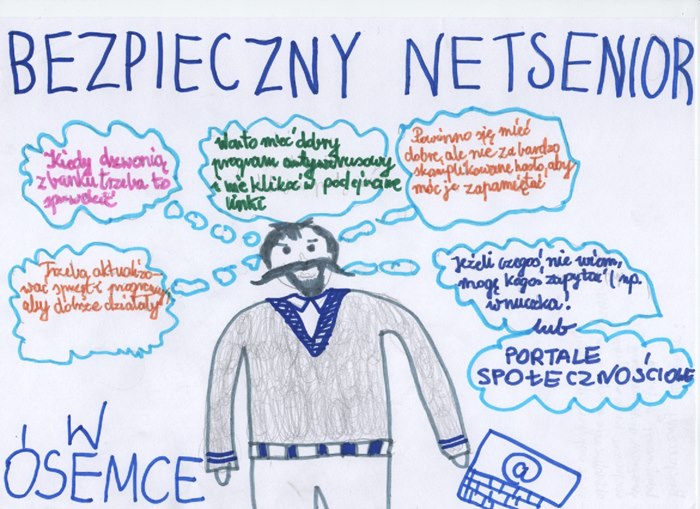 BEZPIECZNY NETSENIOR
Kiedy dzwonią
z banku trzeba to
sprawdzić
Warto mieć dobry
program antywirusowy
i nie klikać w podejrzane
linki
Powinno się mieć
dobre, ale nie za bardzo
skomplikowane hasło, aby
móc je zapamiętać
Trzeba aktualizo-
wać sprzęt i programy,
aby dobrze działały
Jeżeli czegoś nie wiem,
mogę kogoś zapytać (np.
wnuczka!
lub
PORTALE
SPOŁECZNOŚCIOWE
I W
ÓSEMCE
@